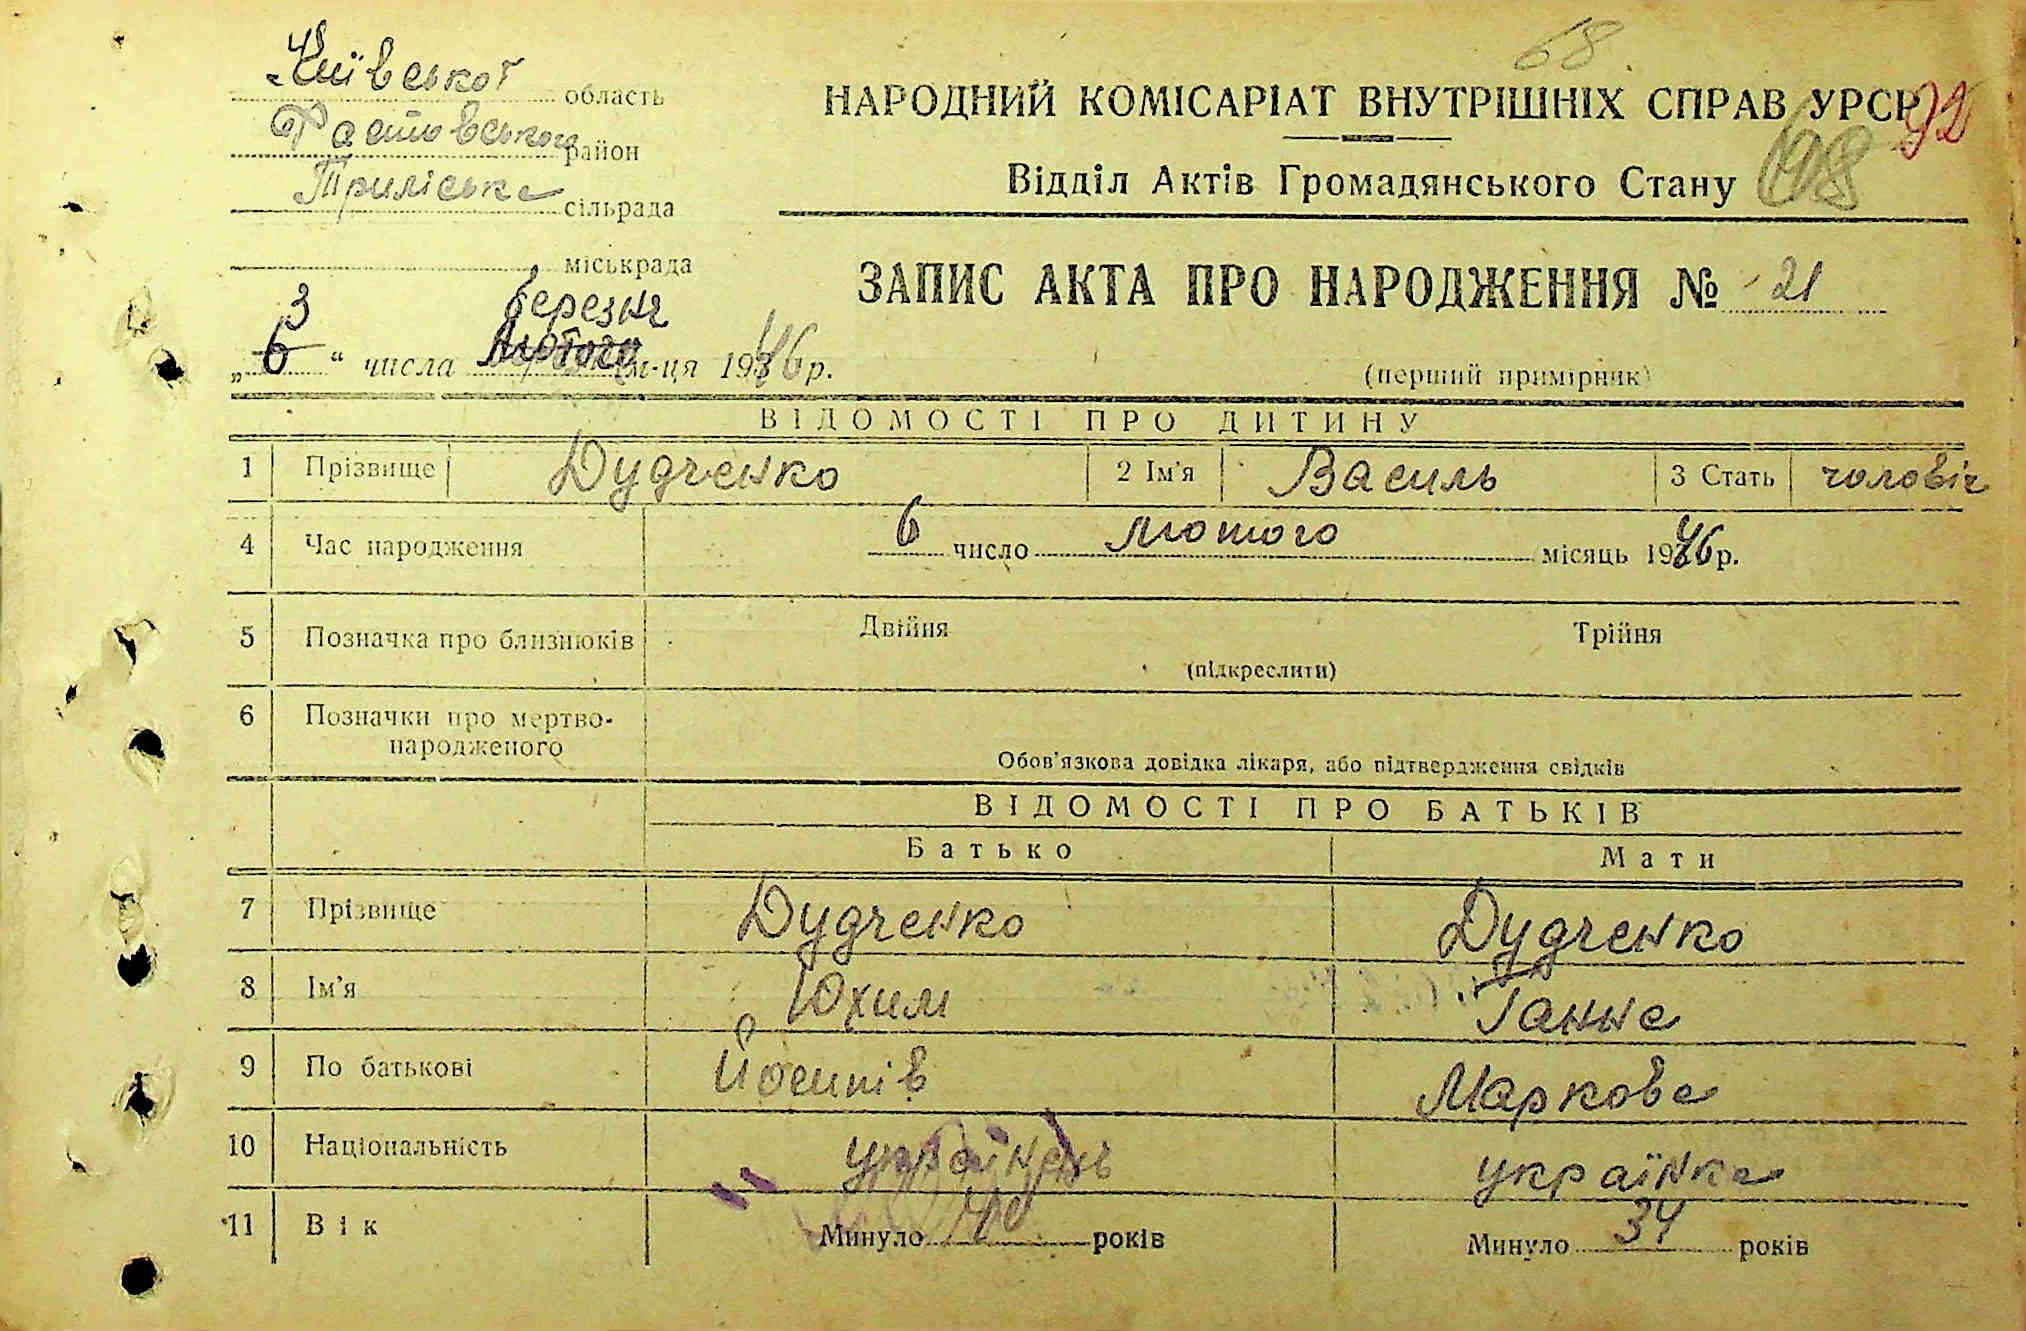 Київської область
Фастовського район
Триліська сільрада
міськрада
68
НАРОДНИЙ КОМІСАРІАТ ВНУТРІШНІХ СПРАВ УРСР
92
Відділ Актів Громадянського Стану
68
ЗАПИС АКТА ПРО НАРОДЖЕННЯ № 21
3 березня
„6“ числа лютого м-ця 1946 р.
(перший примірник)
ВІДОМОСТІ ПРО ДИТИНУ
1 Прізвище Дудченко 2 Ім'я Василь 3 Стать чоловіч
4 Час народження 6 число лютого місяць 1946 р.
5 Позначка про близнюків Двійня Трійня
(підкреслити)
6 Позначки про мертво-
народженого
Обов'язкова довідка лікаря, або підтвердження свідків
ВІДОМОСТІ ПРО БАТЬКІВ
Батько Мати
7 Прізвище Дудченко Дудченко
8 Ім'я Юхим Ганна
9 По батькові Йосипів Маркова
10 Національність українець українка
11 Вік Минуло 40 років Минуло 34 років